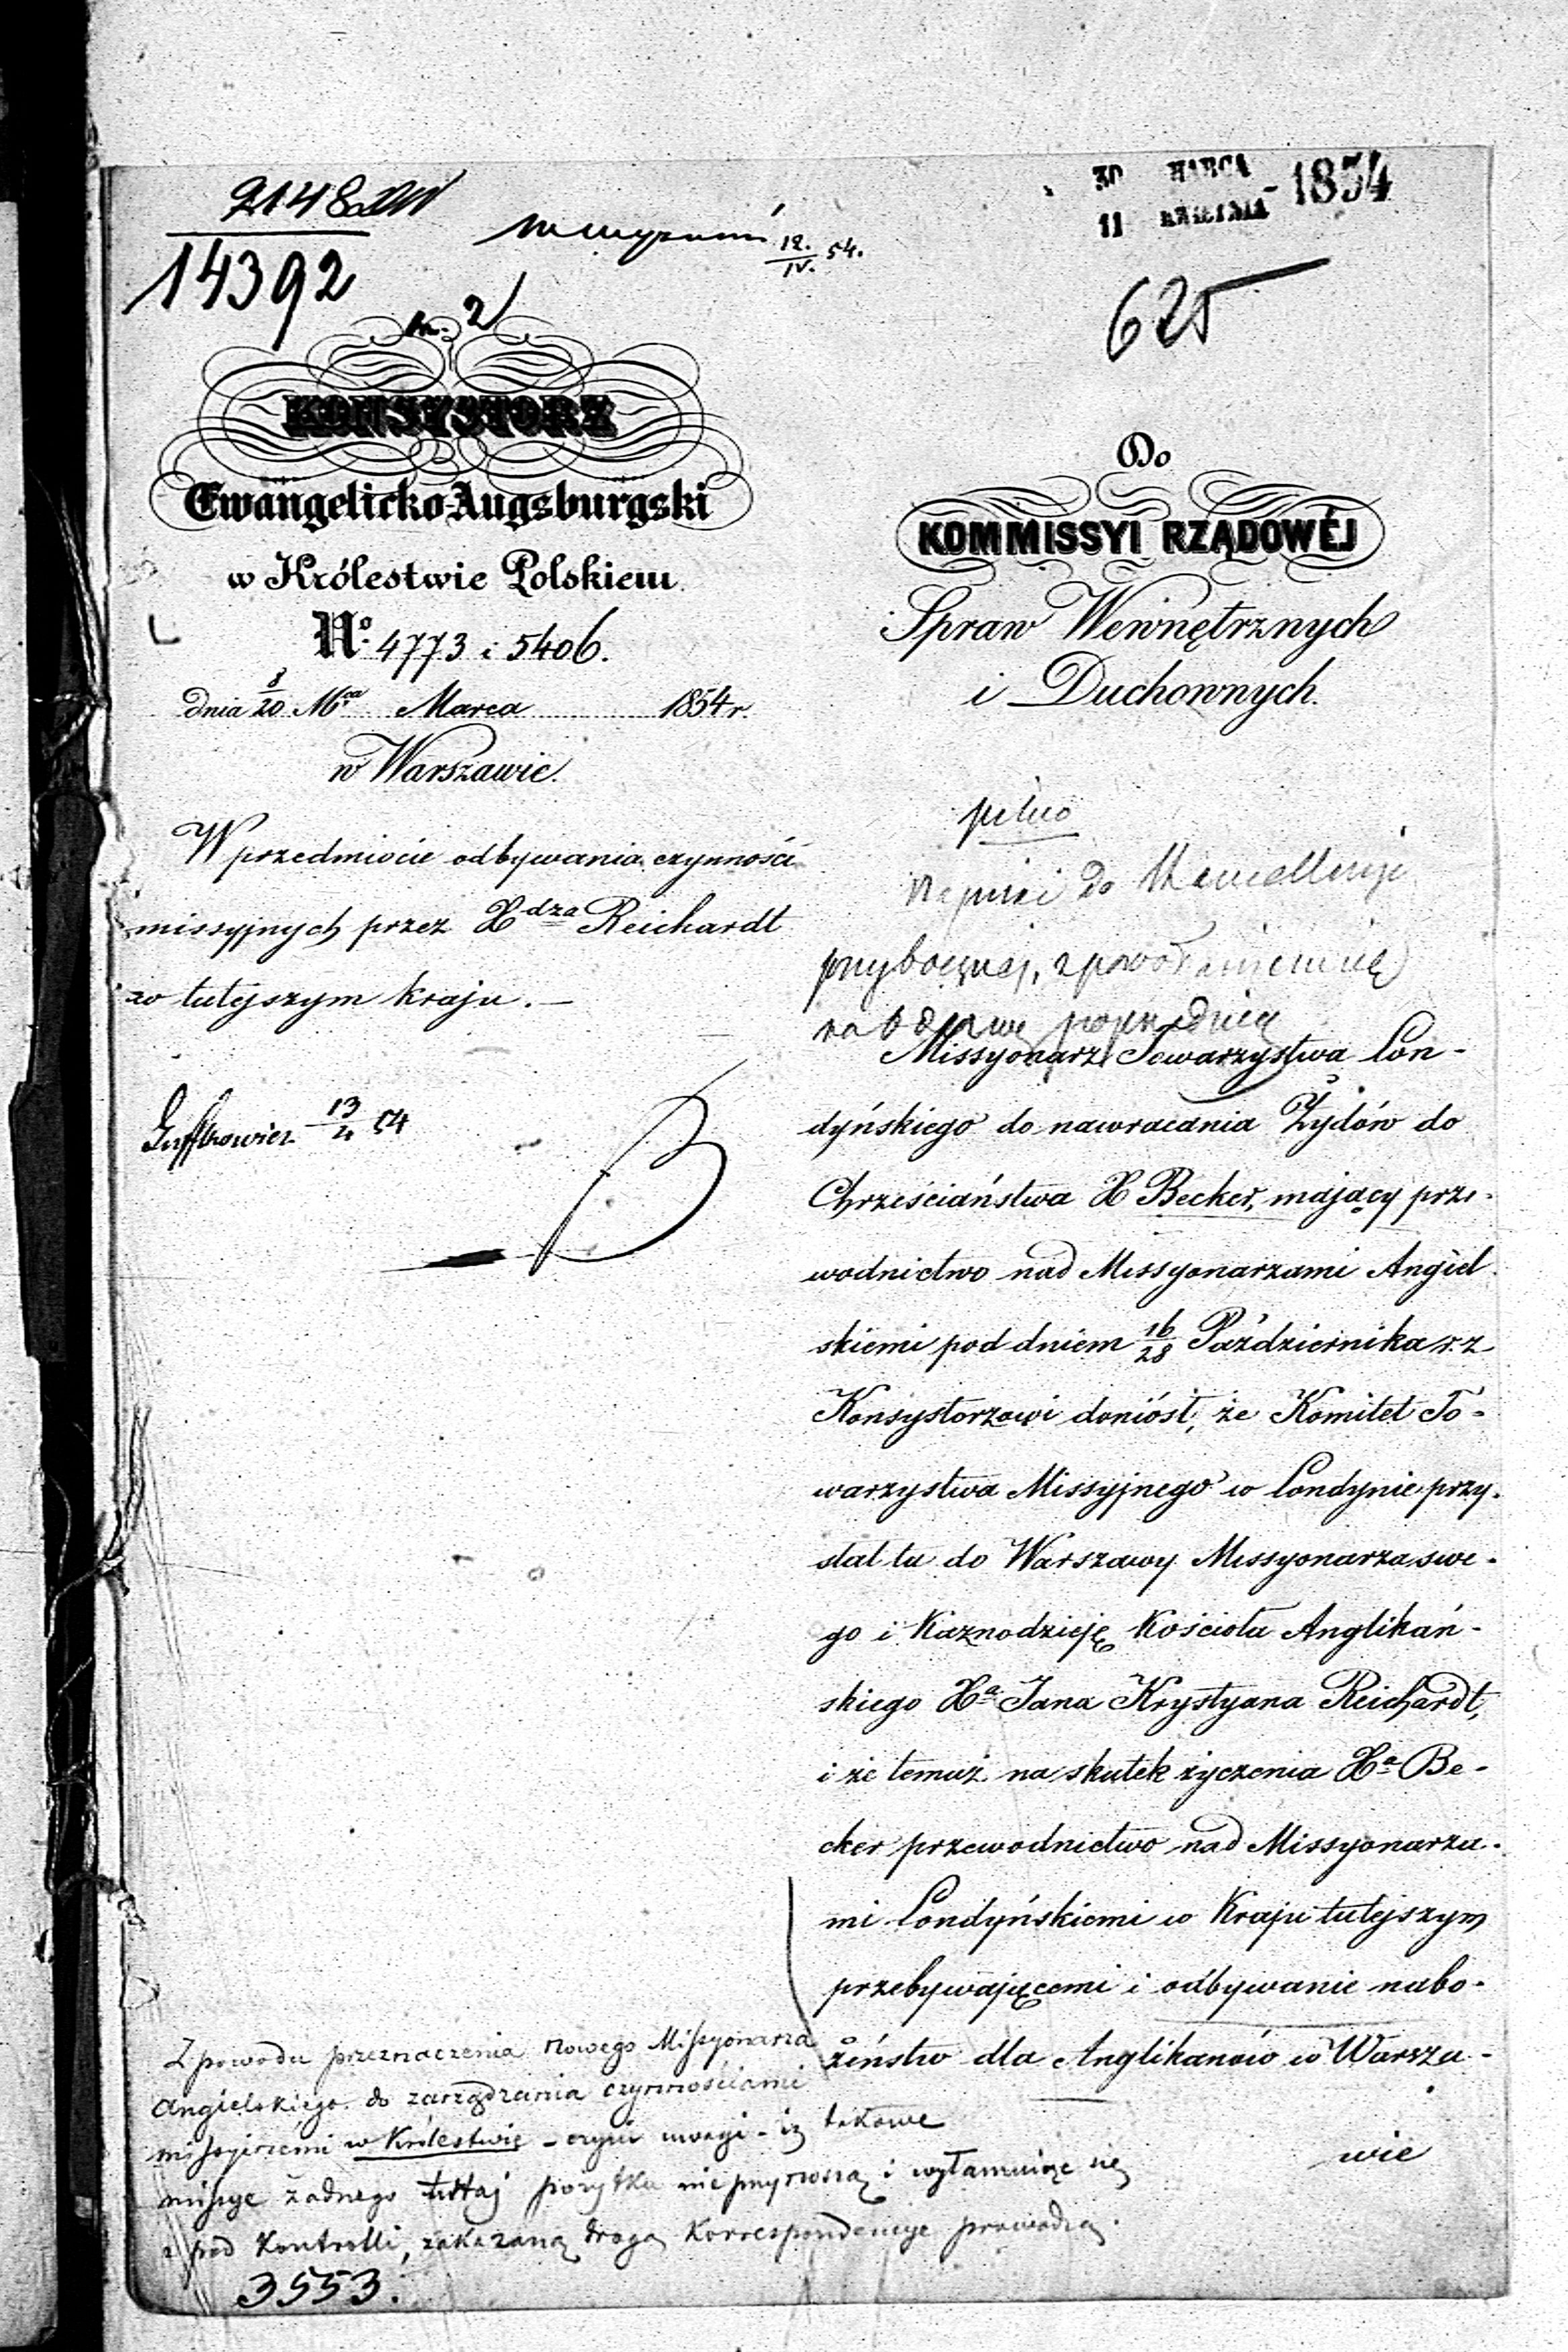 2148
14392
12./IV. 54.
30 MARCA
11 KWIETNIA - 1854
625
2
KONSYSTORZ
Ewangelicko-Augsburgski
w Królestwie Polskiem.
No. 4773 i 5406.
dnia 8/20 Mca Marca 1854 r.
w Warszawie.
W przedmiocie odbywania czynności
missyjnych przez Xdza Reichardt
w tutejszym kraju. —
13/4 54
Do
KOMMISSYI RZĄDOWÉJ
Spraw Wewnętrznych
i Duchownych.
pilno
Napisać do Kancellaryi
przybocznéj, z powołaniem się
na odezwę poprzednią
Missyonarz Towarzystwa Lon-
dyńskiego do nawracania Żydów do
Chrześciaństwa X Becker, mający prze-
wodnictwo nad Missyonarzami Angiel-
skiemi pod dniem 16/28 Października r. z.
Konsystorzowi doniósł, że Komitet To-
warzystwa Missyjnego w Londynie przy-
słał tu do Warszawy Missyonarza swe-
go i Kaznodzieję Kościoła Anglikań-
skiego Xa Jana Krystyana Reichardt,
i że temuż na skutek życzenia Xa Be-
cker przewodnictwo nad Missyonarza-
mi Londyńskiemi w Kraju tutejszym
przebywającemi i odbywanie nabo-
żeństw dla Anglikanów w Warsza-
wie
Z powodu przeznaczenia nowego Missyonarza
Angielskiego do zarządzania czynnościami
missyjnemi w Królestwie - czyni uwagi - iż takowe
missye żadnego tutaj pożytku nie przynoszą i wyłamując się
z pod Kontrolli, zakazaną drogą Korrespondencye prowadzą.
3553.